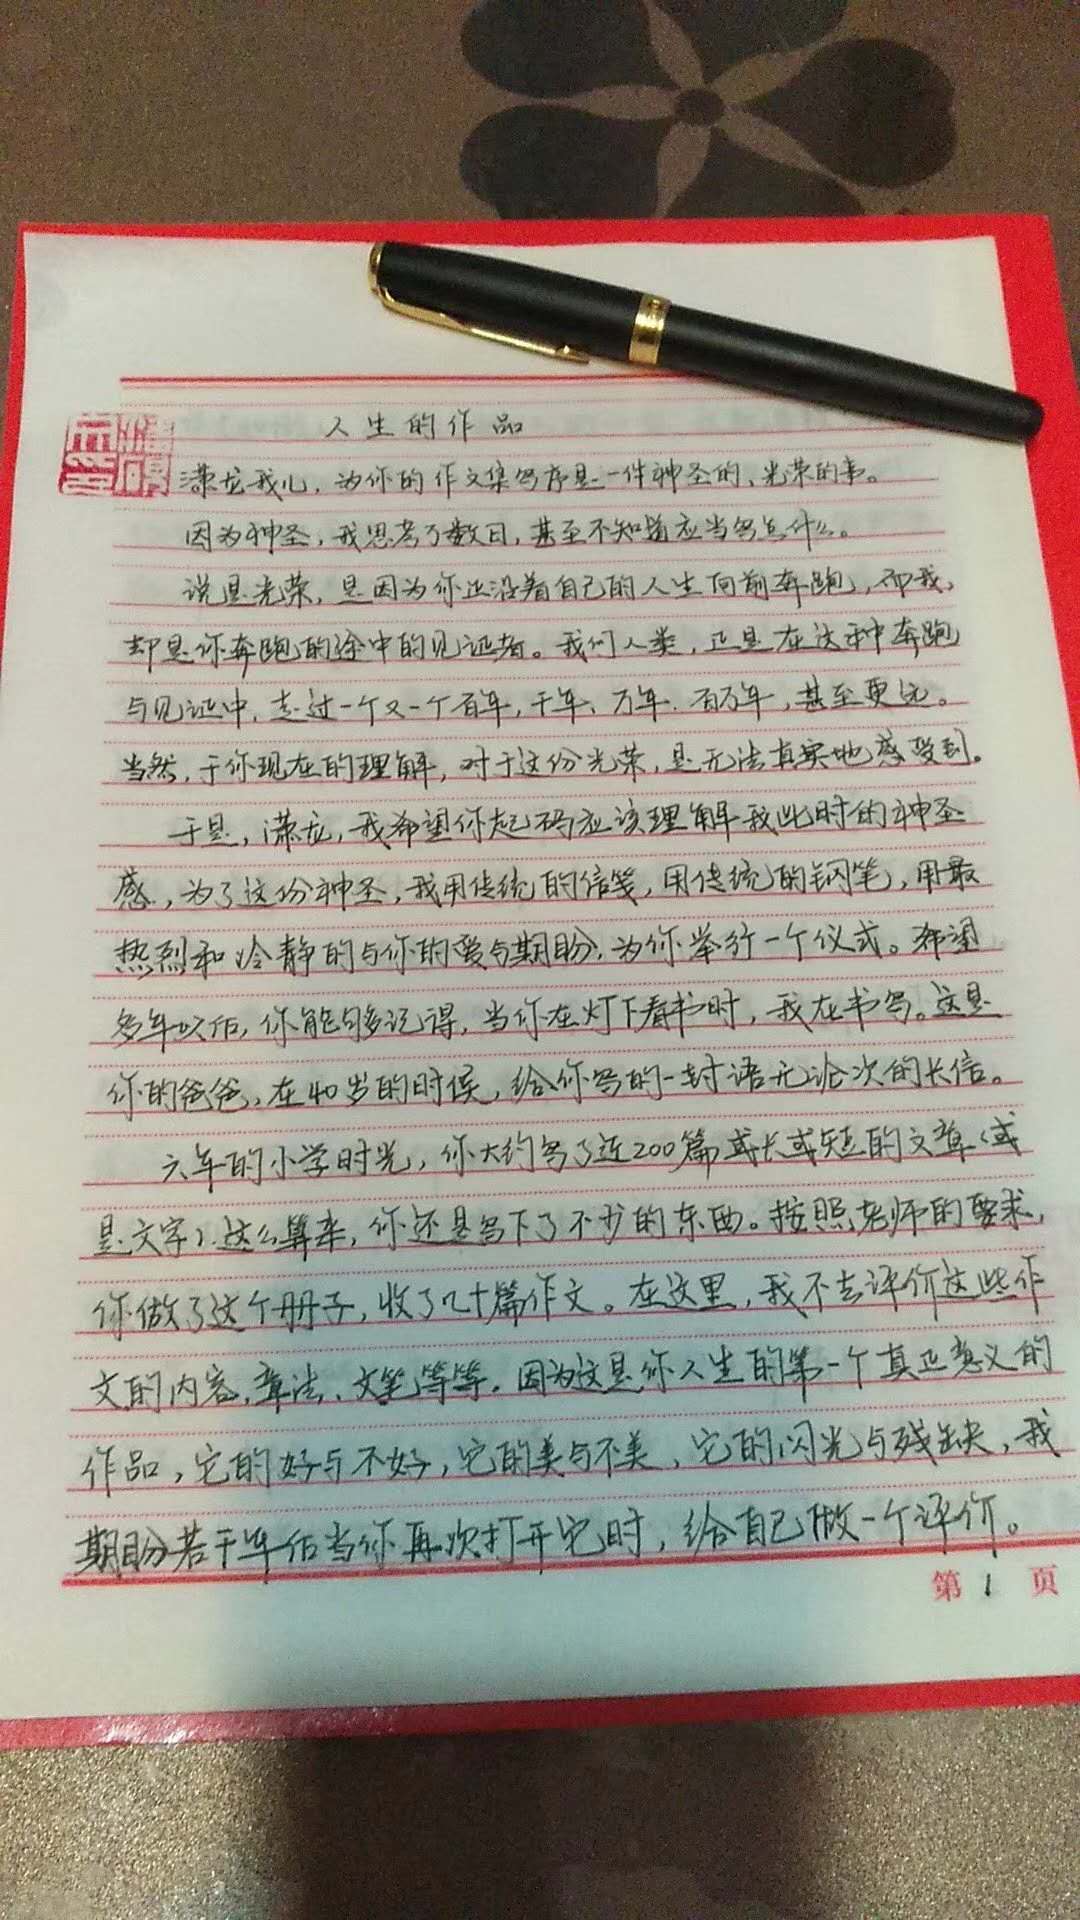 人生的作品
潇龙我儿，为你的作文集写序是一件神圣的、光荣的事。
因为神圣，我思考了数日，甚至不知道应当写点什么。
说是光荣，是因为你正沿着自己的人生向前奔跑，而我，
却是你奔跑的途中的见证者。我们人类，正是在这种奔跑
与见证中，走过一个又一个百年，千年、万年、百万年，甚至更远。
当然，于你现在的理解，对于这份光荣，是无法真实地感受到。
于是，潇龙，我希望你起码应该理解我此时的神圣
感，为了这份神圣，我用传统的信笺，用传统的钢笔，用最
热烈和冷静的与你的爱与期盼，为你举行一个仪式。希望
多年以后，你能够记得，当你在灯下看书时，我在书写。这是
你的爸爸，在40岁的时候，给你写的一封语无论次的长信。
六年的小学时光，你大约写了近200篇或长或短的文章（或
是文字）。这么算来，你还是写下了不少的东西。按照老师的要求，
你做了这个册子，收了几十篇作文。在这里，我不去评价这些作
文的内容、章法、文笔等等，因为这是你人生的第一个真正意义的
作品，它的好与不好，它的美与不美，它的闪光与残缺，我
期盼若干年后当你再次打开它时，给自己做一个评价。
第1页